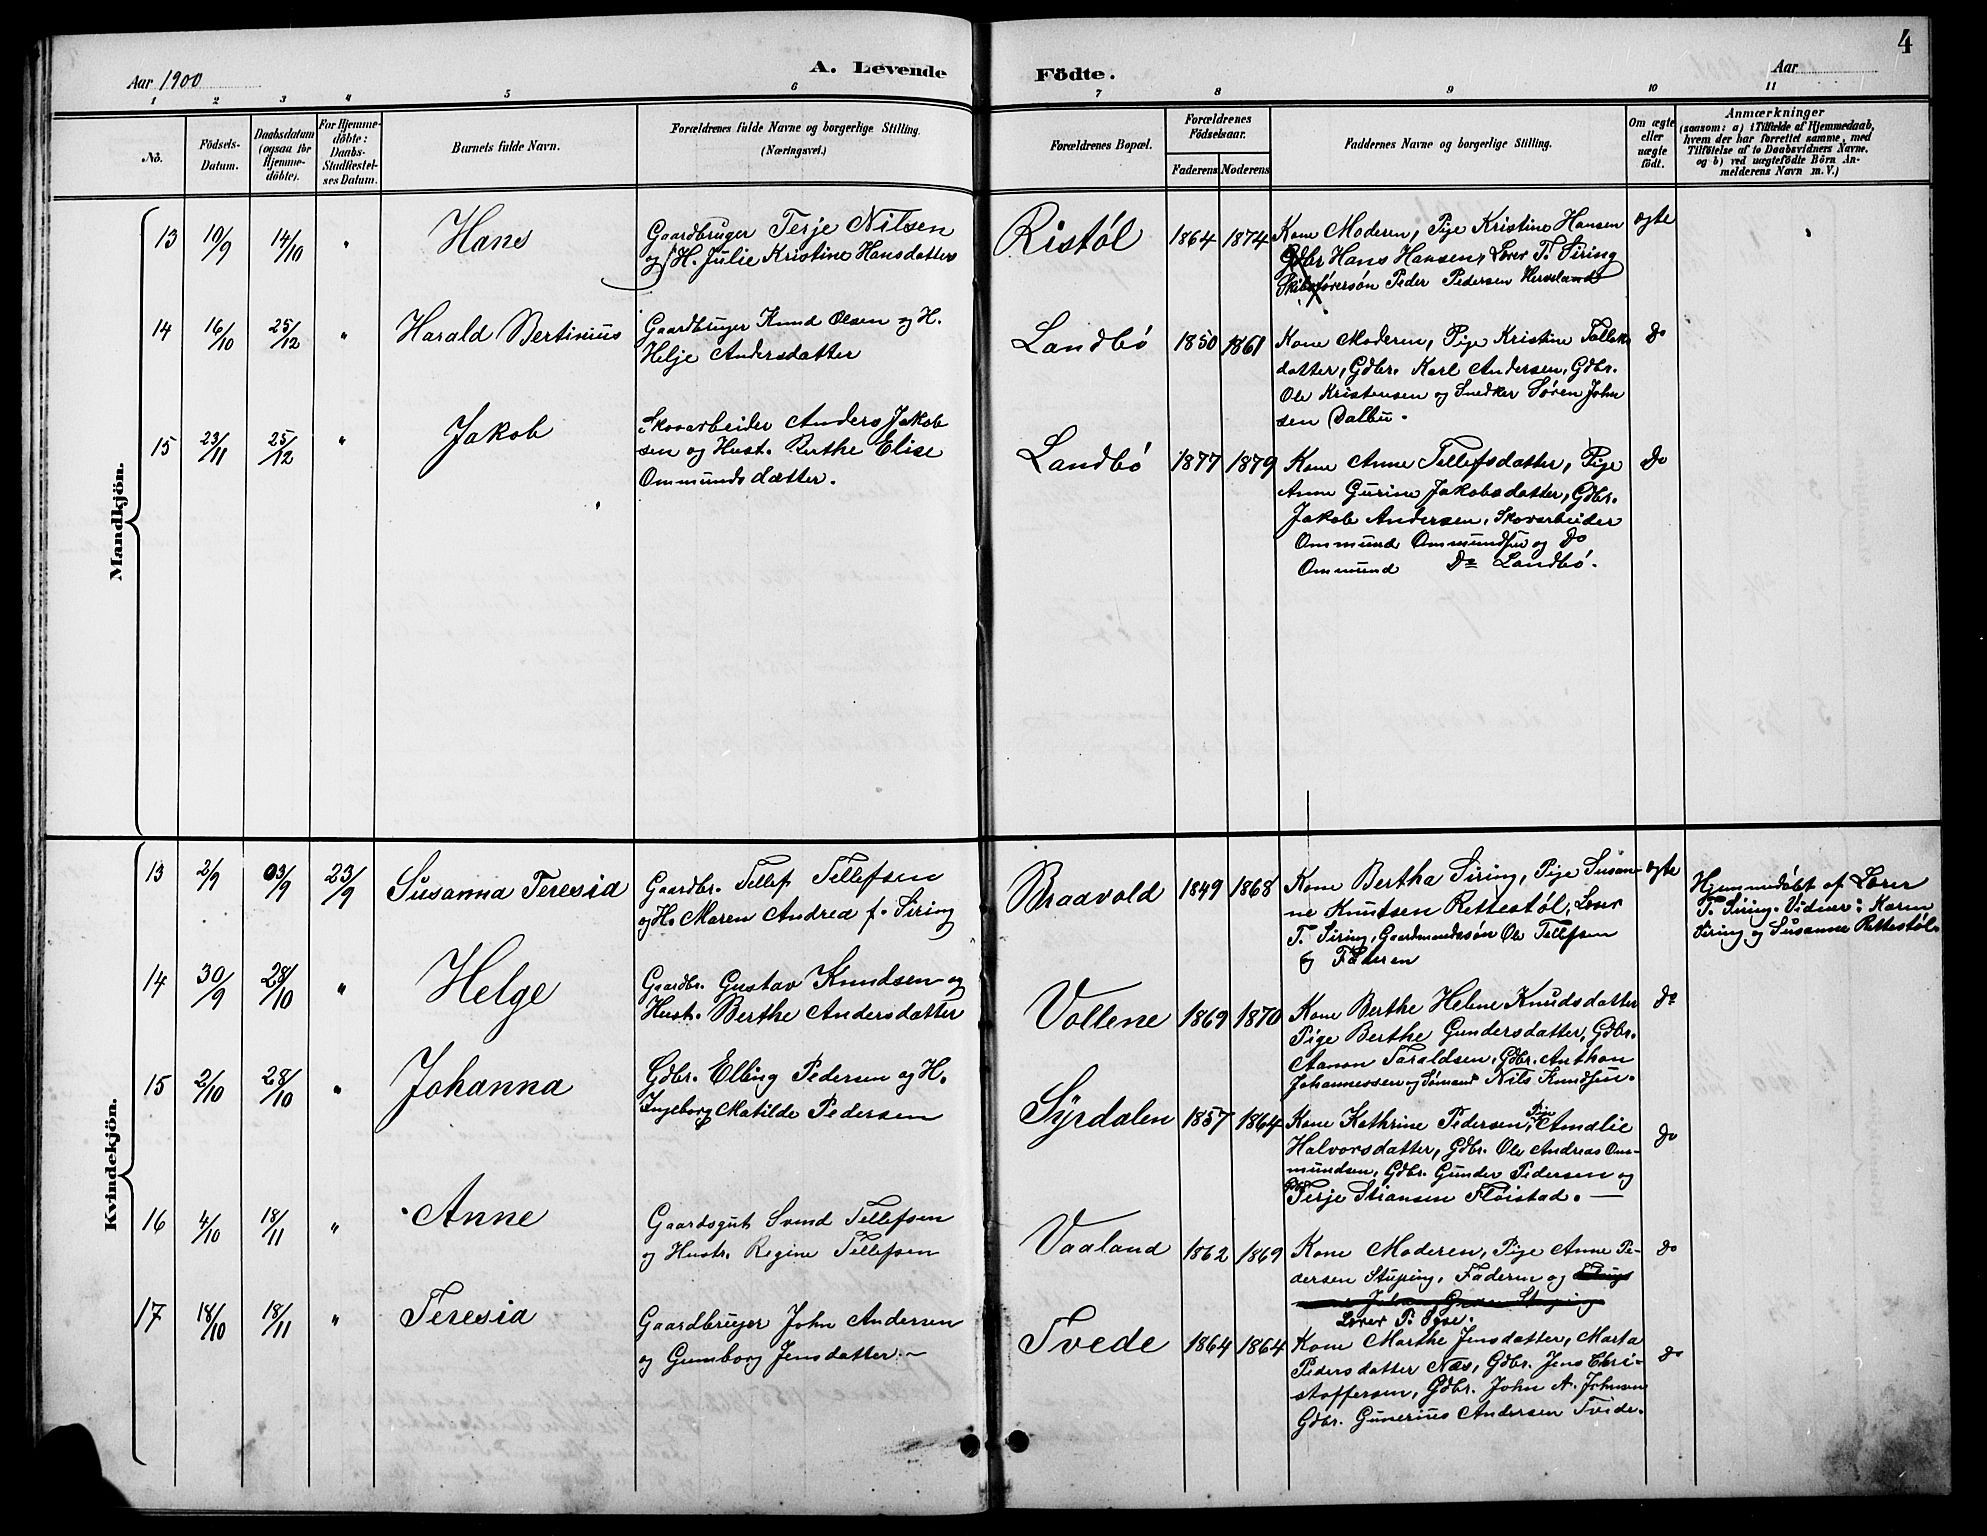 4
Aar 1900
A. Levende
Födte.
Aar
1 2 3 4 5 6 7 8 9 10 11
No.
Födsels-
Datum.
Daabsdatum
(ogsaa for
Hjemme-
döbte).
For Hjemme-
döbte:
Daabs-
Stadfæstel-
ses Datum.
Barnets fulde Navn.
Forældrenes fulde Navne og borgerlige Stilling.
(Næringsvei.)
Forældrenes Bopæl.
Forældrenes
Födselsaar.
Faderens Moderens
Faddernes Navne og borgerlige Stilling.
Om ægte
eller
uægte
födt.
Anmærkninger
(saasom: a) i Tilfælde af Hjemmedaab,
hvem der har forrettet samme, med
Tilföielse af to Daabsvidners Navne,
og b) ved uægtefödte Börn An-
melderens Navn m. V.)
Mandkjön.
13 19/9 14/10 " Hans
Gaardbruger Terje Nilsen
og H. Julie Kristine Hansdatter
Ristøl 1864 1874
Kone Moderen, Pige Kristine Hansen
Gdbr Hans Hansen, Lærer T. Siring
Skibsførersøn Peder Pedersen Herseland
ægte
14 16/10 25/12 " Harald Bertinius
Gaardbruger Knud Olsen og H.
Helje Andersdatter
Landbø 1850 1861
Kone Moderen, Pige Kristine Tallak
datter, Gdbr. Karl Andersen, Gdbr.
Ole Kristensen og Snedker Søren John
sen Dalbu.
Do
15 23/11 25/12 " Jakob
Skovarbeider Anders Jakob
sen og Hust. Berthe Elise
Ommundsdatter.
Landbø 1877 1879
Kone Anne Tellefsdatter, Pige
Anne Gurine Jakobsdatter, Gdbr.
Jakob Andersen, Skovarbeider
Ommund Ommundsen og Do
Ommund Do Landbø.
Do
Kvindekjön.
13 2/9 23/9 23/9 Susanna Teresia
Gaardbr. Tellef Tellefsen
og H. Maren Andrea f. Siring
Braavold 1849 1868
Kone Bertha Siring, Pige Susan-
ne Knutsen Rettestøl, Lærer
T. Siring, Gaardmandssøn Ole Tellefsen
og Faderen
ægte
Hjemmedøbt af Lærer
T. Siring. Vidner: Karen
Siring og Susanne Rettestøl.
14 30/9 28/10 " Helge
Gaardbr. Gustav Knudsen og
Hust. Berthe Andersdatter
Vollene 1869 1870
Kone Berthe Helene Knudsdatter
Pige Berthe Gundersdatter, Gdbr.
Aanon Taraldsen, Gdbr. Anthon
Johannessen og Sømand Nils Knudsen.
Do
15 2/10 28/10 " Johanna
Gdbr. Elling Pedersen og H.
Ingeborg Matilde Pedersen
Syrdalen 1857 1864
Kone Kathrine Pedersen, Pige Amalie
Halvorsdatter, Gdbr. Ole Andreas Om-
mundsen, Gdbr. Gunder Pedersen og
Gdbr Terje Stiansen Fløistad. —
Do
16 4/10 18/11 " Anne
Gaardsgut Svend Tellefsen
og Hustr. Regine Tellefsen
Vaaland 1862 1869
Kone Moderen, Pige Anne Pe-
dersen Stuping, Faderen og
Lærer P. Syse.
Do
17 18/10 18/11 " Teresia
Gaardbruger John Andersen
og Gumborg Jensdatter. —
Tvede 1864 1864
Kone Marthe Jensdatter, Marta
Pedersdatter Næs, Gdbr. Jens Chri-
stoffersen, Gdbr. John A. Johnsen
Gdbr. Gunerius Andersen Tvide.
Do